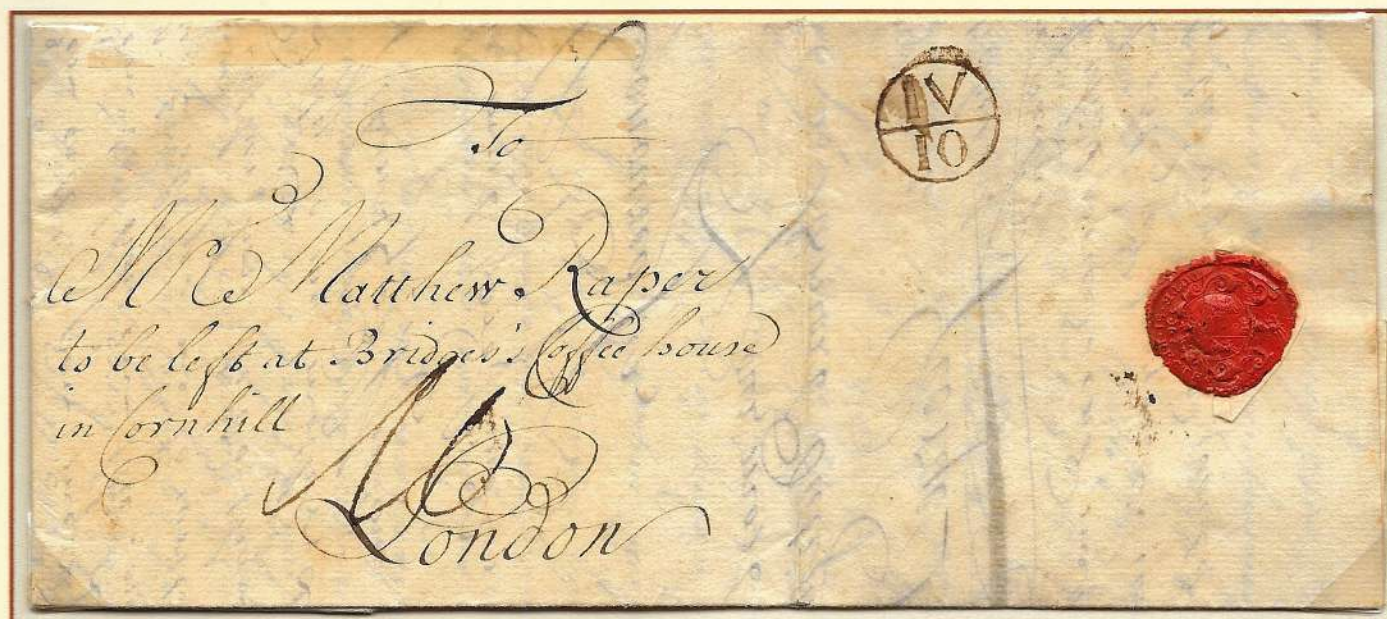 To
Mr Matthew Raper
to be left at Bridges's Coffee house
in Cornhill
London
IV
10